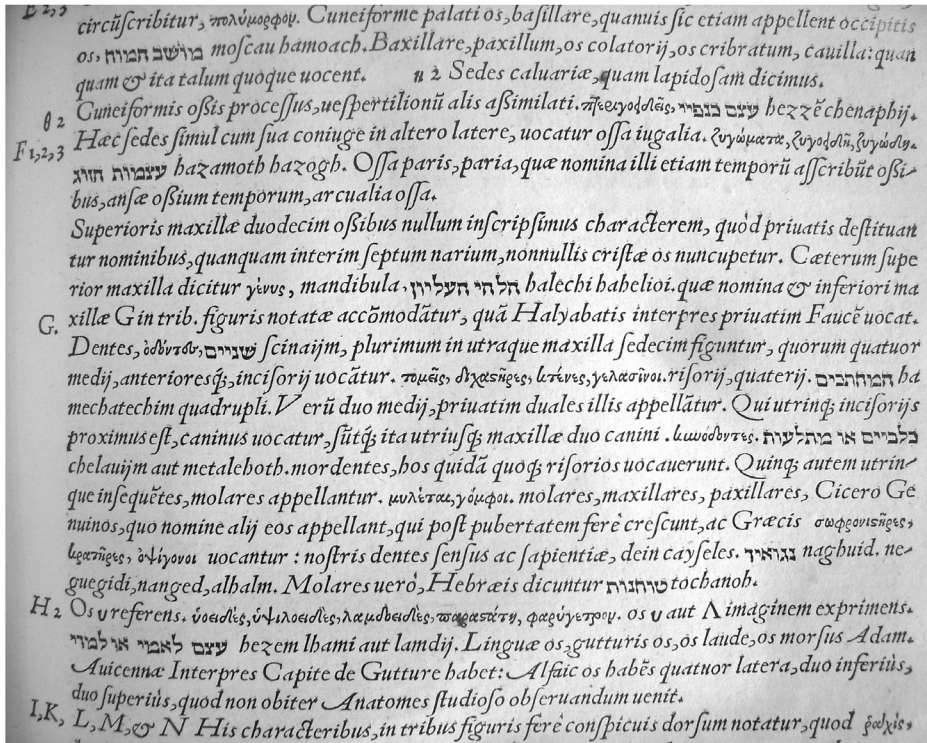 circũſcribitur, πολύμορφον. Cuneiforme palati os, baſillare, quanuis ſic etiam appellent occipitis
os. מושב המוח moſcau hamoach. Baxillare, paxillum, os colatorij, os cribratum, cauilla: quan
quam & ita talum quoque uocent. n 2 Sedes caluariæ, quam lapidoſam dicimus.
θ 2 Cuneiformis oßis proceſſus, ueſpertilionũ alis aßimilati. πτερυγοειδεῖς, עצם כנפיי hezzẽ chenaphij.
F 1, 2, 3 Hæc ſedes ſimul cum ſua coniuge in altero latere, uocatur oſſa iugalia. ζυγώματα, ζυγοειδῆ, ζυγώδη.
עצמות הזוג hazamoth hazogh. Oſſa paris, paria, quæ nomina illi etiam temporũ aſſcribũt oßi-
bus, anſæ oſſium temporum, arcualia oſſa.
Superioris maxillæ duodecim oßibus nullum inſcripſimus characterem, quòd priuatis deſtituan
tur nominibus, quanquam interim ſeptum narium, nonnullis criſtæ os nuncupetur. Cæterum ſupe
rior maxilla dicitur γένυς, mandibula, הלחי העליון halechi habelioi. quæ nomina & inferiori ma
G. xillæ G in trib. figuris notatæ accõmodãtur, quã Halyabatis interpres priuatim Faucẽ uocat.
Dentes, ὀδόντες, שניים ſcinaijm, plurimum in utraque maxilla ſedecim figuntur, quorum quatuor
medij, anterioresq́;, inciſorij uocãtur. τομεῖς, διχαστῆρες, κτένες, γελασῖνοι. riſorij, quaterij. המחתכים ha
mechatechim quadrupli. Verũ duo medij, priuatim duales illis appellãtur. Qui utrinq; inciſorijs
proximus eſt, caninus uocatur, ſũtq́; ita utriuſq; maxillæ duo canini. κυνόδοντες. כלביים או מתלעות
chelauijm aut metalehoth. mordentes, hos quidã quoq; riſorios uocauerunt. Quinq; autem utrin-
que inſequẽtes, molares appellantur. μυλέται, γόμφοι. molares, maxillares, paxillares, Cicero Ge
nuinos, quo nomine alij eos appellant, qui poſt pubertatem ferè creſcunt, ac Græcis σωφρονιστῆρες,
κραντῆρες, ὀψίγονοι uocantur: noſtris dentes ſenſus ac ſapientiæ, dein cayſeles. נגואיד naghuid. ne-
guegidi, nanged, alhalm. Molares uerò, Hebræis dicuntur טוחנות tochanoh.
H 2 Os υ referens. ὑοειδὲς, ὑψιλοειδὲς, λαμδοειδὲς, παραστάτην, φαρύγετρον. os υ aut Λ imaginem exprimens.
עצם לאמי או למדי hezem lhami aut lamdij. Linguæ os, gutturis os, os laude, os morſus Adam.
Auicennæ Interpres Capite de Gutture habet: Alfaic os habẽs quatuor latera, duo inferiùs,
duo ſuperiùs, quod non obiter Anatomes ſtudioſo obſeruandum uenit.
I, K, L, M, & N His characteribus, in tribus figuris ferè conſpicuis dorſum notatur, quod ῥάχις.